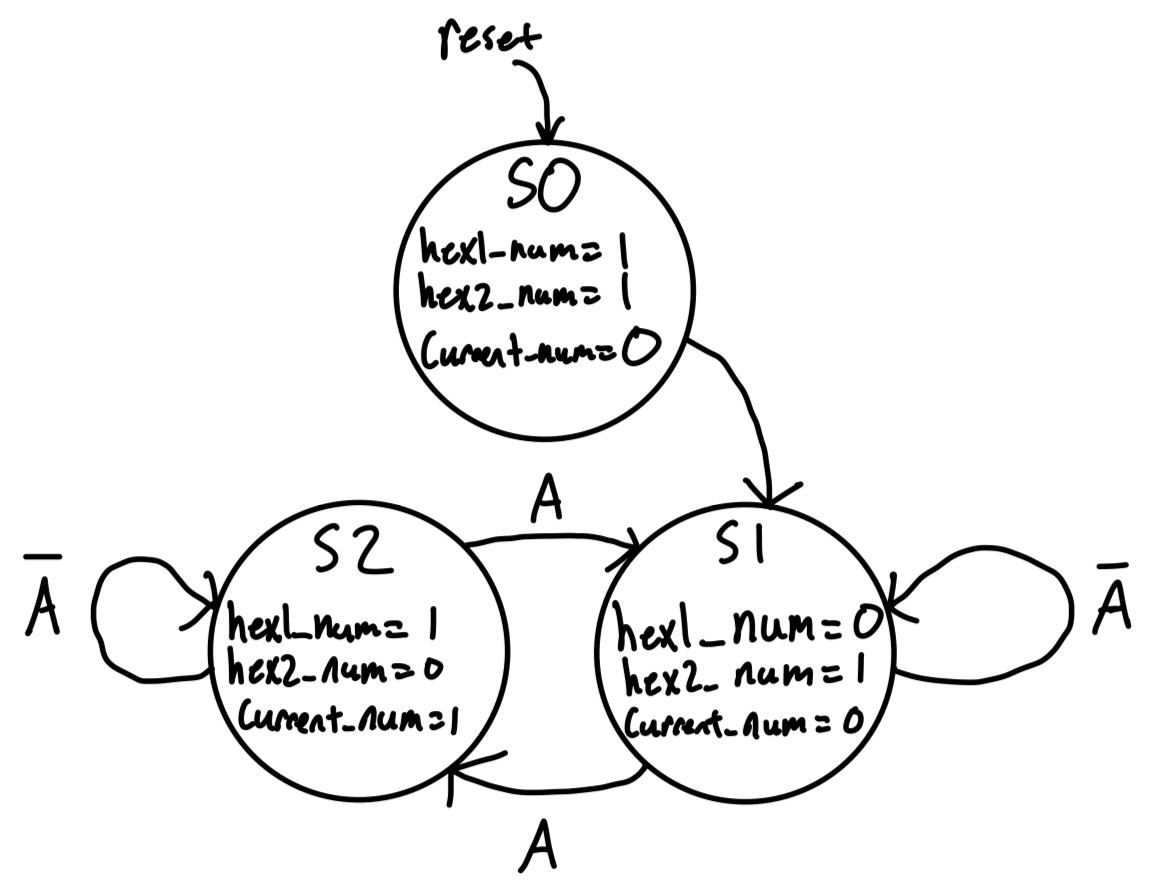 reset
S0
hex1_num= 1
hex2_num= 1
Current_num=0
A
S2
hex1_num= 1
hex2_num=0
Current_num=1
S1
hex1_num=0
hex2_num=1
Current_num=0
A̅
A̅
A